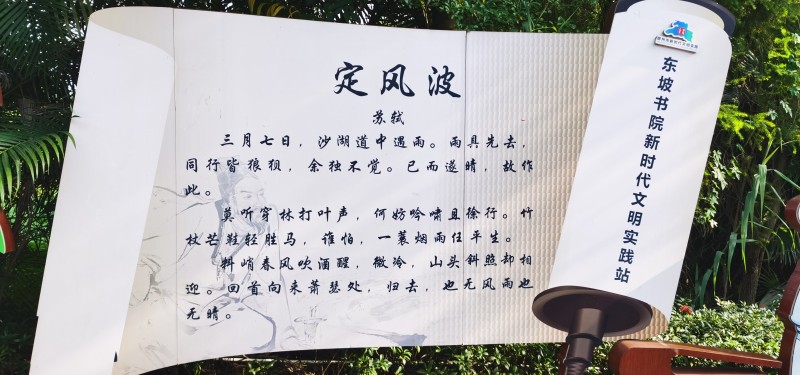 定风波
苏轼
三月七日，沙湖道中遇雨。雨具先去，
同行皆狼狈，余独不觉。已而遂晴，故作
此。
莫听穿林打叶声，何妨吟啸且徐行。竹
杖芒鞋轻胜马，谁怕，一蓑烟雨任平生。
料峭春风吹酒醒，微冷，山头斜照却相
迎。回首向来萧瑟处，归去，也无风雨也
无晴。
东坡书院新时代文明实践站